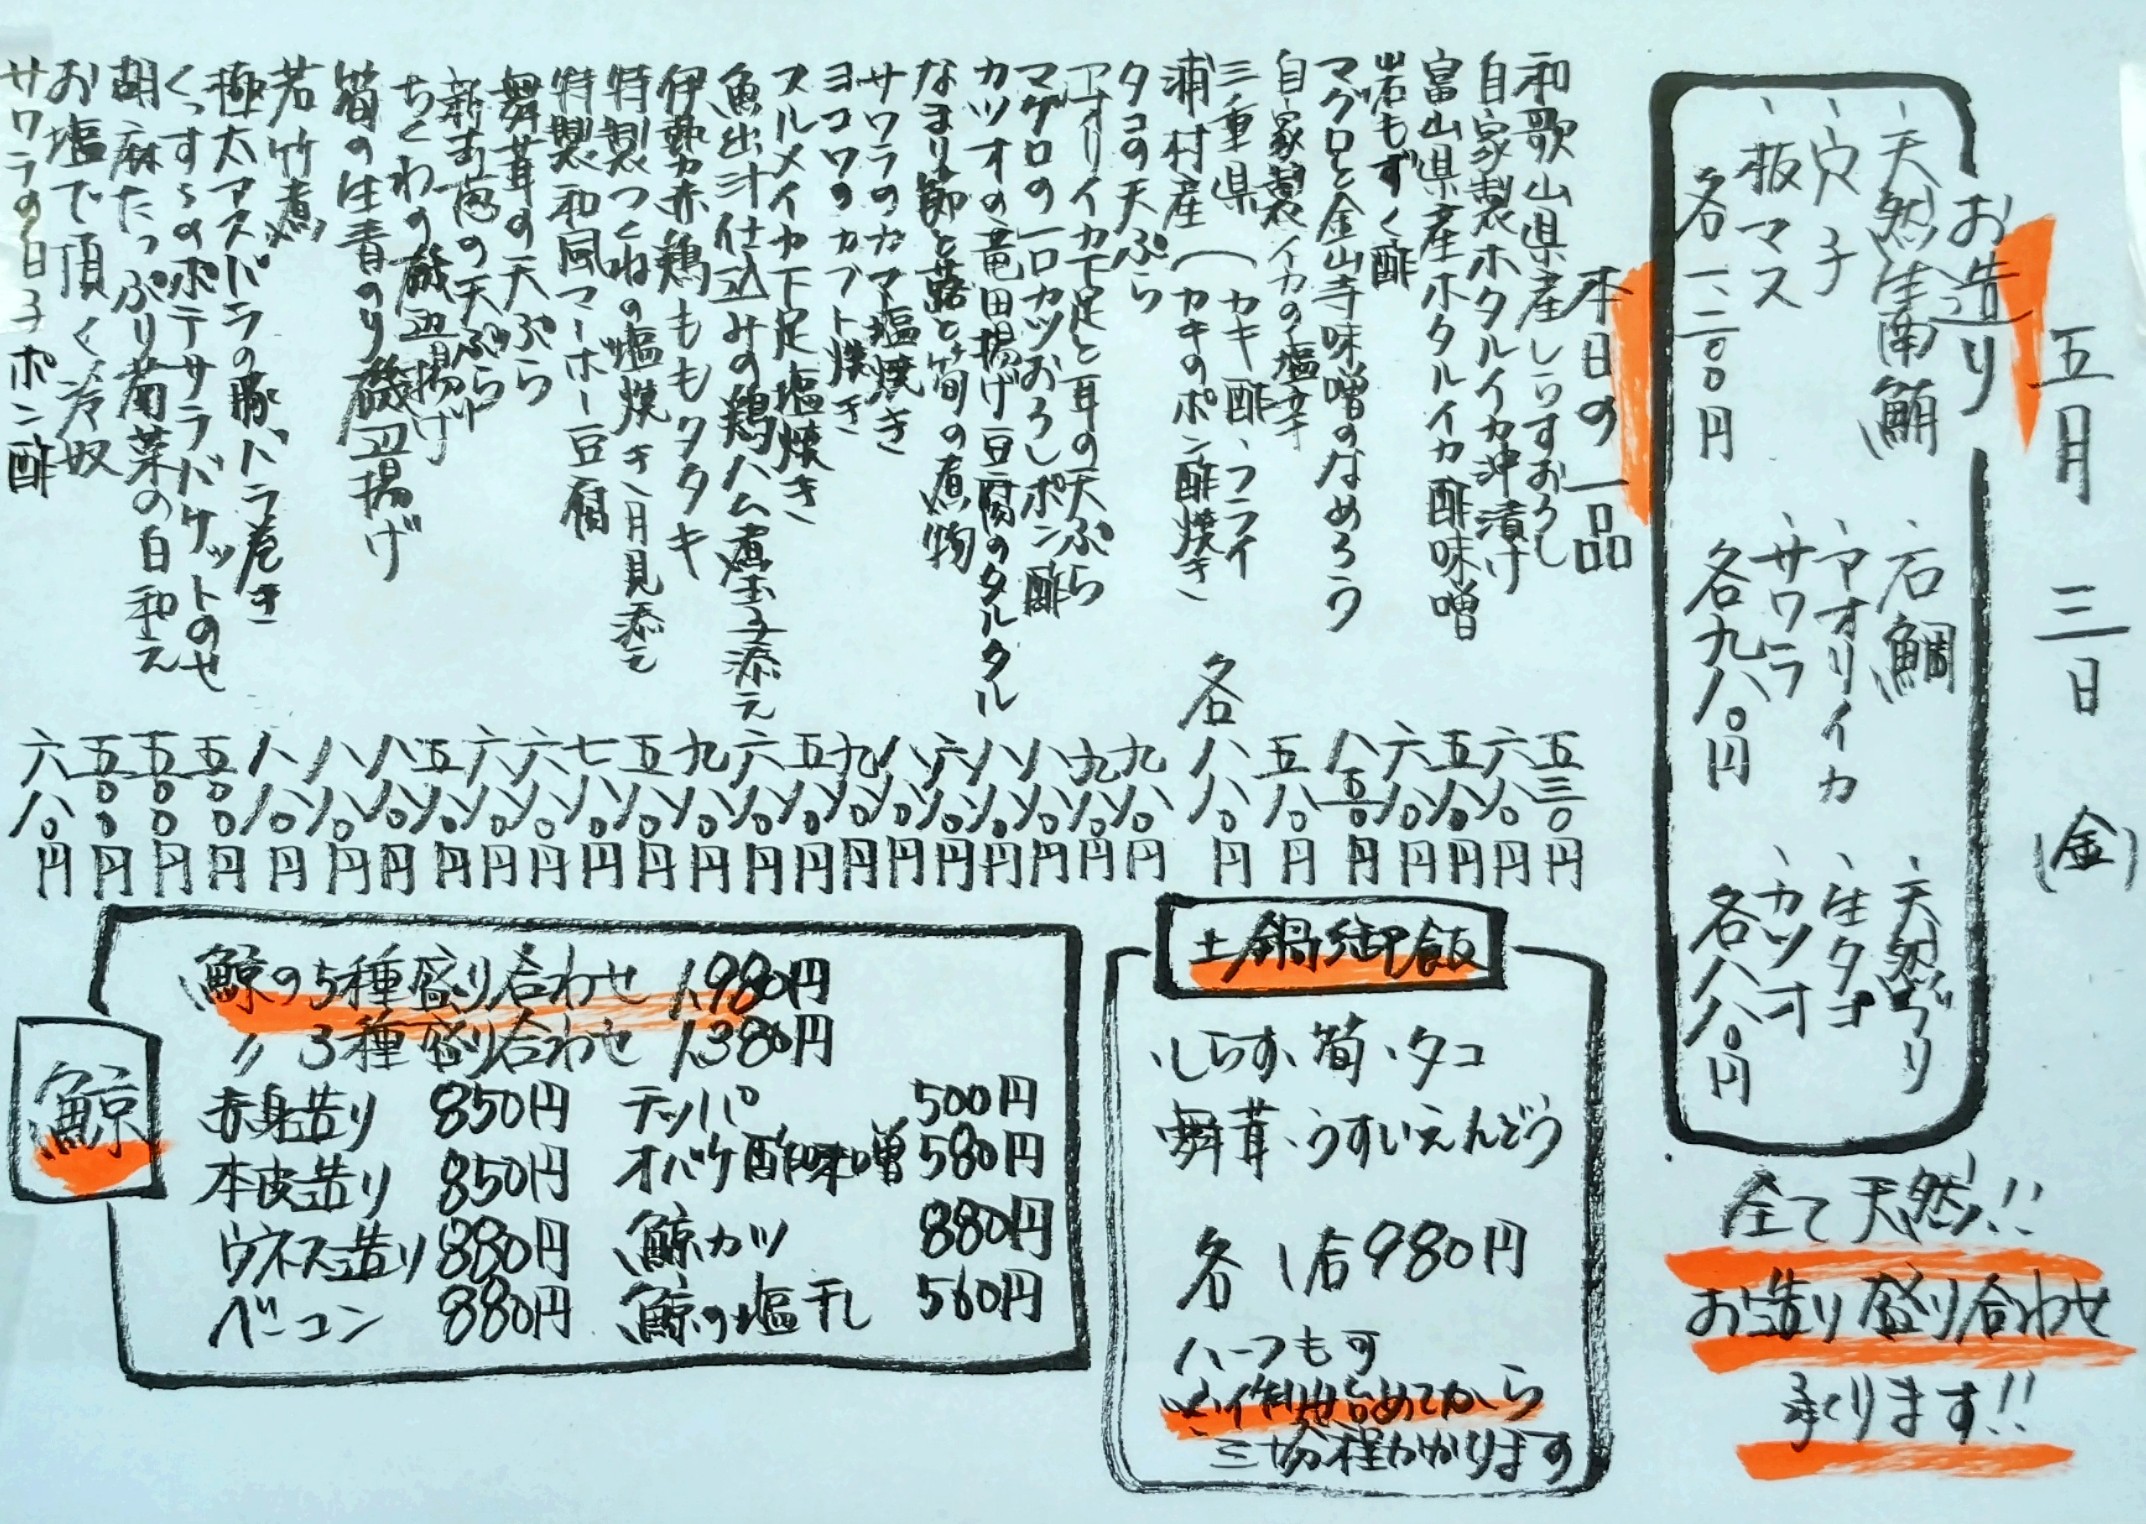 五月三日(金)
お造り
、天然生南鮪
、穴子
、板マス
各一、二〇〇円
、石鯛
、アオリイカ
、サワラ
各九八〇円
、天然ぶり
、生タコ
、カツオ
各八八〇円
全て天然!!
お造り盛り合わせ
承ります!!
本日の一品
和歌山県産しらすおろし 五三〇円
自家製ホタルイカ沖漬け 六八〇円
富山県産ホタルイカ酢味噌 五八〇円
岩もずく酢 六八〇円
マグロと金山寺味噌のなめろう 八五〇円
自家製イカの塩辛 五八〇円
三重県
浦村産(カキ酢、フライ
カキのポン酢焼き 各八八〇円
タコの天ぷら 九八〇円
アオリイカ下足と耳の天ぷら 九八〇円
マグロの一口カツおろしポン酢 八八〇円
カツオの竜田揚げ豆腐のタルタル 八八〇円
なまり節と蕗と筍の煮物 六八〇円
サワラのカマ塩焼き 八八〇円
ヨコワのカブト焼き 九八〇円
スルメイカ下足塩焼き 五八〇円
魚出汁仕込みの鶏ハム煮玉子添え 六八〇円
伊勢赤鶏ももタタキ 九八〇円
特製つくねの塩焼き、月見添え 五八〇円
特製和風マーボー豆腐 七八〇円
舞茸の天ぷら 六八〇円
新玉葱の天ぷら 六八〇円
ちくわの磯辺揚げ 五八〇円
筍の生青のり磯辺揚げ 八八〇円
若竹煮 八八〇円
極太アスパラの豚バラ巻き 八八〇円
くっすぅのポテサラバケットのせ 五〇〇円
胡麻たっぷり菊菜の白和え 五〇〇円
お塩で頂く冷奴 五〇〇円
サワラの白子ポン酢 六八〇円
土鍋御飯
、しらす、筍、タコ
舞茸、うすいえんどう
各1合980円
ハーフも可
※作り始めてから
三十分程かかります
鯨
鯨の5種盛り合わせ 1,980円
〃 3種盛り合わせ 1,380円
赤身造り 850円
本皮造り 850円
ウネス造り 880円
ベーコン 880円
テッパ 500円
オバケ酢味噌 580円
鯨カツ 880円
鯨の塩干し 560円